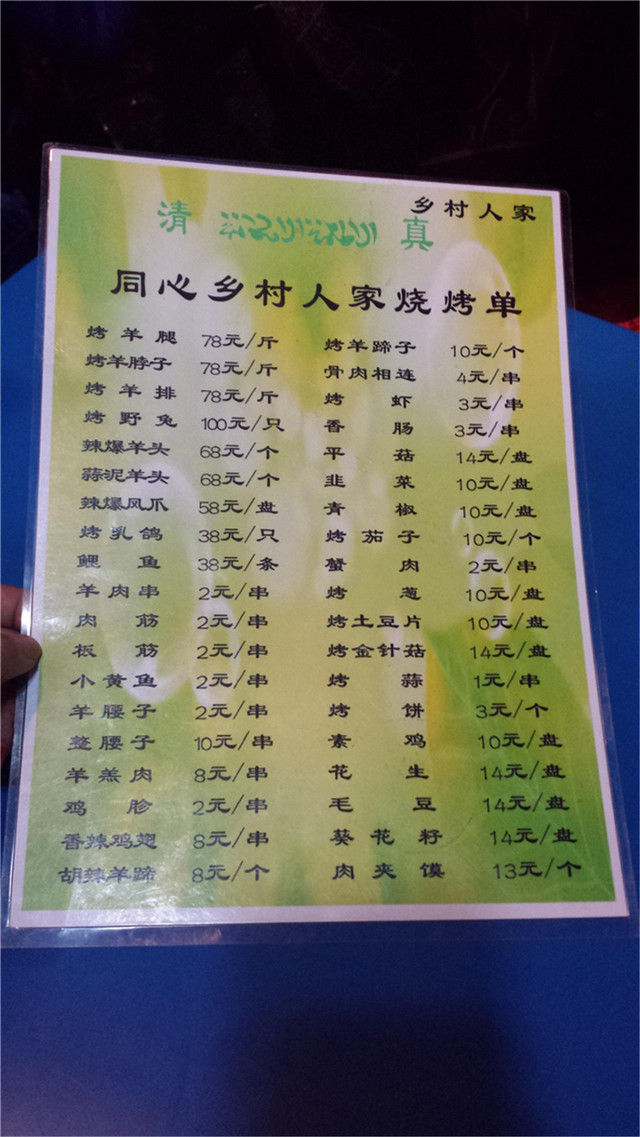 乡村人家
清 真
同心乡村人家烧烤单
烤羊腿 78元/斤
烤羊脖子 78元/斤
烤羊排 78元/斤
烤野兔 100元/只
辣爆羊头 68元/个
蒜泥羊头 68元/个
辣爆凤爪 58元/盘
烤乳鸽 38元/只
鲤鱼 38元/条
羊肉串 2元/串
肉筋 2元/串
板筋 2元/串
小黄鱼 2元/串
羊腰子 2元/串
整腰子 10元/串
羊羔肉 8元/串
鸡胗 2元/串
香辣鸡翅 8元/串
胡辣羊蹄 8元/个
烤羊蹄子 10元/个
骨肉相连 4元/串
烤虾 3元/串
香肠 3元/串
平菇 14元/盘
韭菜 10元/盘
青椒 10元/盘
烤茄子 10元/个
蟹肉 2元/串
烤葱 10元/盘
烤土豆片 10元/盘
烤金针菇 14元/盘
烤蒜 1元/串
烤饼 3元/个
素鸡 10元/盘
花生 14元/盘
毛豆 14元/盘
葵花籽 14元/盘
肉夹馍 13元/个